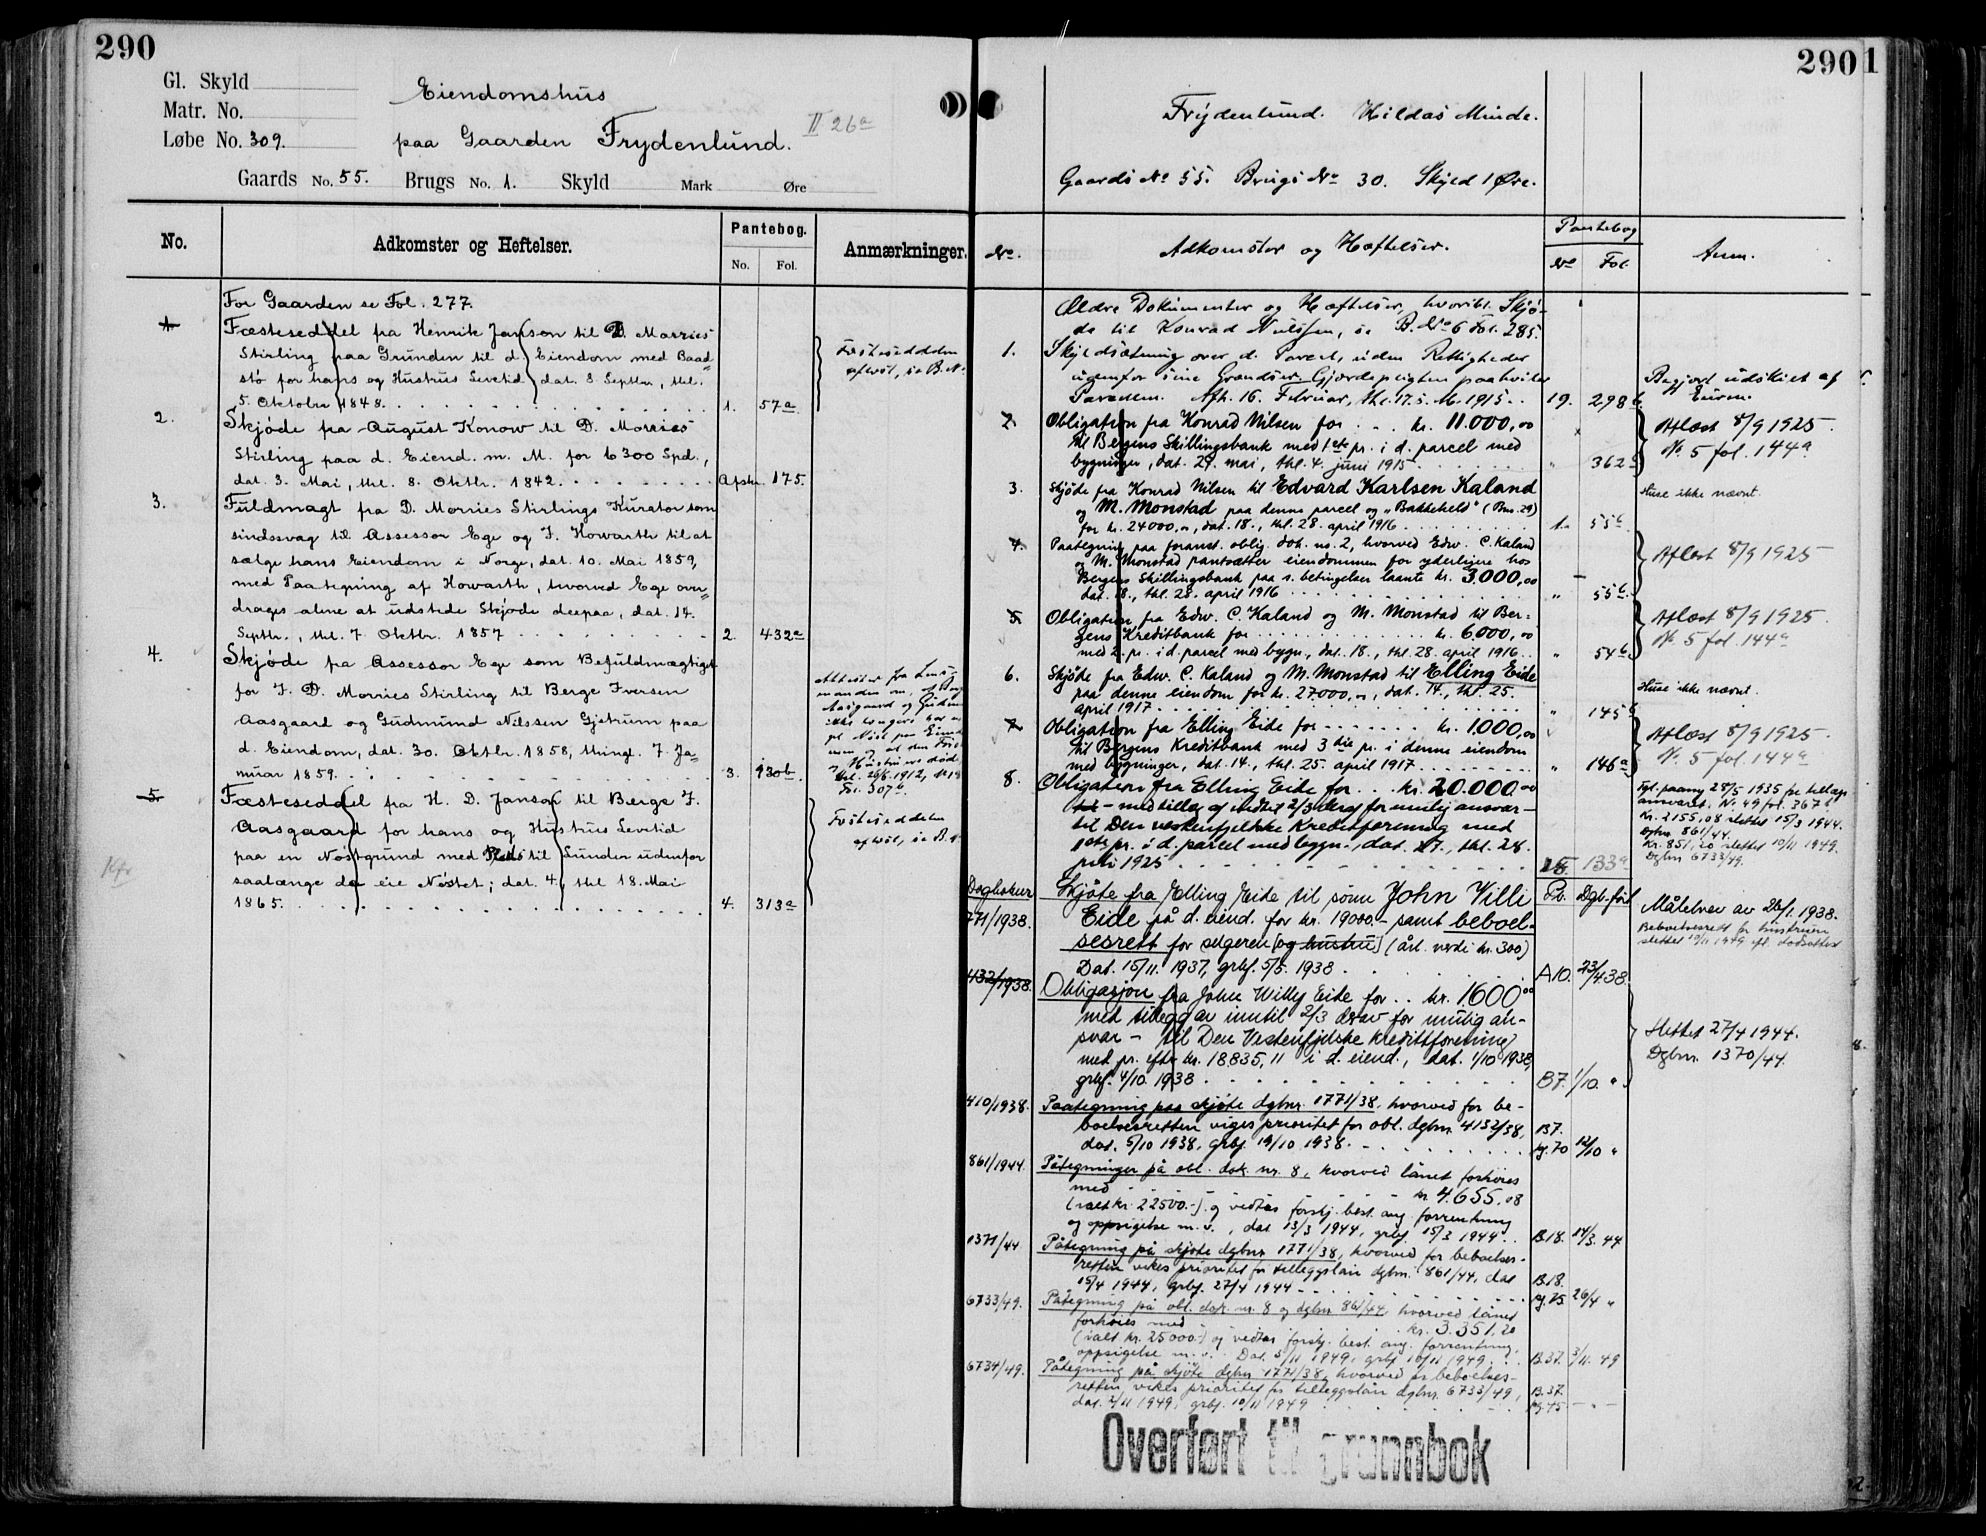 290
Gl. Skyld
Matr. No.
Løbe No. 309.
Eiendomshus
paa Gaarden Frydenlund.
II 26a
Gaards No. 55. Brugs No. 1. Skyld Mark Øre
No.
Adkomster og Heftelser.
Pantebog.
No. Fol.
Anmærkninger.
For Gaarden se Fol. 277.
1 Fæsteseddel fra Henrik Janson til D. Morries
Stirling paa Grunden til d. Eiendom med Baad=
stø for hans og Hustrus Levetid dat. 8 Septbr., thl.
5. Oktober 1848. 1. 57a
Festesedden
aflæst, se B. N.
2. Skjøde fra August Konow til D. Morries
Stirling paa d. Eiend. m. M. for 6300 Spd.,
dat. 3. Mai, thl. 8. Oktbr. 1842. Afskr. 175.
3. Fuldmagt fra D. Morries Stirlings Kurator som
sindssvag til Assessor Ege og J. Howarth til at
sælge hans Eiendom i Norge, dat. 10. Mai 1859,
med Paategning af Howarth, hvorved Ege over=
drages alene at udstede Skjøde derpaa, dat. 14.
Septbr., thl. 7. Oktbr. 1857 2. 432a
4. Skjøde fra Assessor Ege som Befuldmægtiget
for J. D. Morries Stirling til Berge Iversen
Aasgaard og Gudmund Nilssen Gjetrum paa
d. Eiendom, dat. 30. Oktbr. 1858, thingl. 7. Ja=
nuar 1859. 3. 130b.
Attester fra Lens
manden om, at
Aasgaard og Gudm
ikke længere har
Nøst paa Eiend
men og at den
Hustrues død
thl. 26/6 1912,
Fol. 307b.
5. Fæsteseddel fra H. D. Janson til Berge I.
Aasgaard for hans og Hustrus Levetid
paa en Nøstgrund med Plads til Lunder udenfor
saalænge de eie Nøstet; dat. 4., thl 18. Mai
1865. 4. 313a
Festesedden
aflæst, se B.
Kfr
2901
Frydenlund. Hildas Minde.
Gaards No 55. Brugs No 30. Skyld 1 Øre.
No.
Adkomster og Hæftelser.
Pantebog
No Fol.
Anm.
Ældre Dokumenter og Hæftelser, hvoribl. Skjø-
de til Konrad Nielsen, se B. No 6 Fol. 285.
1. Skyldsætning over d. Parcel, uden Rettigheder
udenfor sine Grændser. Gjerdepligten paahviler
Parcellen. Afh. 16. Februar, thl. 17. s. M. 1915. 19. 298b
Begjært udskilt af
Eieren.
2. Obligation fra Konrad Nilsen for . . . kr. 11.000,00
til Bergens Skillingsbank med 1ste pr. i d. parcel med
bygninger, dat. 29. mai, thl. 4. juni 1915 " 362b
Aflæst 8/9 1925
No. 5 fol. 144a
3. Skjøde fra Konrad Nilsen til Edvard Karlsen Kaland
og M. Monstad paa denne parcel og „Bakkeheld" (Bno. 29)
for kr. 24000,00, dat. 18., thl. 28. april 1916 1. 55b.
Huse ikke nævnt.
4. Paategning paa foranst. oblig. dok. no. 2, hvorved Edw. C. Kaland
og M. Monstad pantsætter eiendommen for yderligere hos
Bergens Skillingsbank paa s. betingelser laante kr. 3.000,00
dat. 18., thl. 28. april 1916 " 55b.
Aflæst 8/9 1925
5. Obligation fra Edw. C. Kaland og M. Monstad til Ber=
gens Kreditbank for kr. 6.000,00
med 2. pr. i d. parcel med bygn., dat. 18., thl. 28. april 1916 " 54b
Aflæst 8/9 1925.
No. 5 fol. 144a
6. Skjøde fra Edw. C. Kaland og M. Monstad til Elling Eide
paa denne eiendom for kr. 27000,00, dat. 14., thl. 25.
april 1917 " 145b
Huse ikke nævnt.
7. Obligation fra Elling Eide for kr. 1.000,00
til Bergens Kreditbank med 3die pr. i denne eiendom
med bygninger, dat. 14., thl. 25. april 1917 " 146a
Aflæst 8/9 1925.
No. 5 fol. 144a
8. Obligation fra Elling Eide for . . . kr. 20.000,00
– med tillæg af indtil 2/3 deraf for mulig ansvar –
til Den vestenfjelske Kreditforening med
1ste pr. i d. parcel med bygn., dat. 27., thl. 28.
juli 1925 15. 133a
Tgl. paateg 28/5 1935 for tillægs
ansvaret. N. 49 fol. 367b
Kr. 2155,08 slettet 15/3 1944.
Dgbnr. 861/44.
Kr. 851,20 slettet 10/11 1949.
Dgbnr 6733/49.
Dagboknr Pb. Dgb.ført
771/1938. Skjøte fra Elling Eide til sønn John Villi
Eide på d. eiend. for kr. 19000.– samt beboel-
sesrett for selgeren [og hustru] (årl. verdi kr. 300)
Dat. 15/11. 1937, grbf. 5/5. 1938 A10. 23/4.38.
Målebrev av 28/1. 1938.
Beboelsesrett for hustruen
slettet 10/11 1949 efl. dødsattest
4132/1938. Obligasjon fra John Willy Eide for .. kr. 1600,00
med tillegg av inntil 2/3 derav for mulig an-
svar – til Den Vestenfjelske Kredittforening
med pr. efter kr. 18.835,11 i d. eiend., dat. 1/10 1938,
grbf. 4/10. 1938 B7. 1/10. "
Slettet 27/4 1944.
Dgbnr. 1370/44.
410/1938. Paategning paa skjøte dgbnr. 1771/38, hvorved for be-
boelsesretten viges prioritet for obl. dgbnr 4132/38,
dat. 5/10 1938, grbf. 19/10 1938. B7.
pg. 70 12/10 "
861/1944. Påtegninger på obl. dok. nr. 8, hvorved lånet forhøies
med kr. 4.655,08
(ialt kr. 22500.–) og vedtas forskj. best. ang. forrentning
og oppsigelse m.v., dat 13/3 1944, grbf. 15/3 1944 B.18. 14/3. 44
1371/44 Påtegning på skjøte dgbnr 1771/38, hvorved for beboelses-
retten vikes prioritet for tilleggslån dgbnr. 861/44, dat
15/4 1944, grbf. 27/4 1944 B.18.
pg. 75. 26/4 "
6733/49. Påtegning på obl. dok. nr. 8 og dgbnr 861/44, hvorved lånet
forhøies med kr. 3.351,20
(ialt kr. 25000.–) og vedtas forskj. best. ang. forrentning,
oppsigelse m.v. Dat. 2/11 1949, grbf 10/11 1949 B.37. 3/11. 49
6734/49. Påtegning på skjøte dgbnr 1771/38, hvorved for beboelses-
retten vikes prioritet for tilleggslån dgbnr. 6733/49,
dat. 2/11 1949, grbf. 10/11 1949 B.37.
pg 45 – " –
Overført til grunnbok